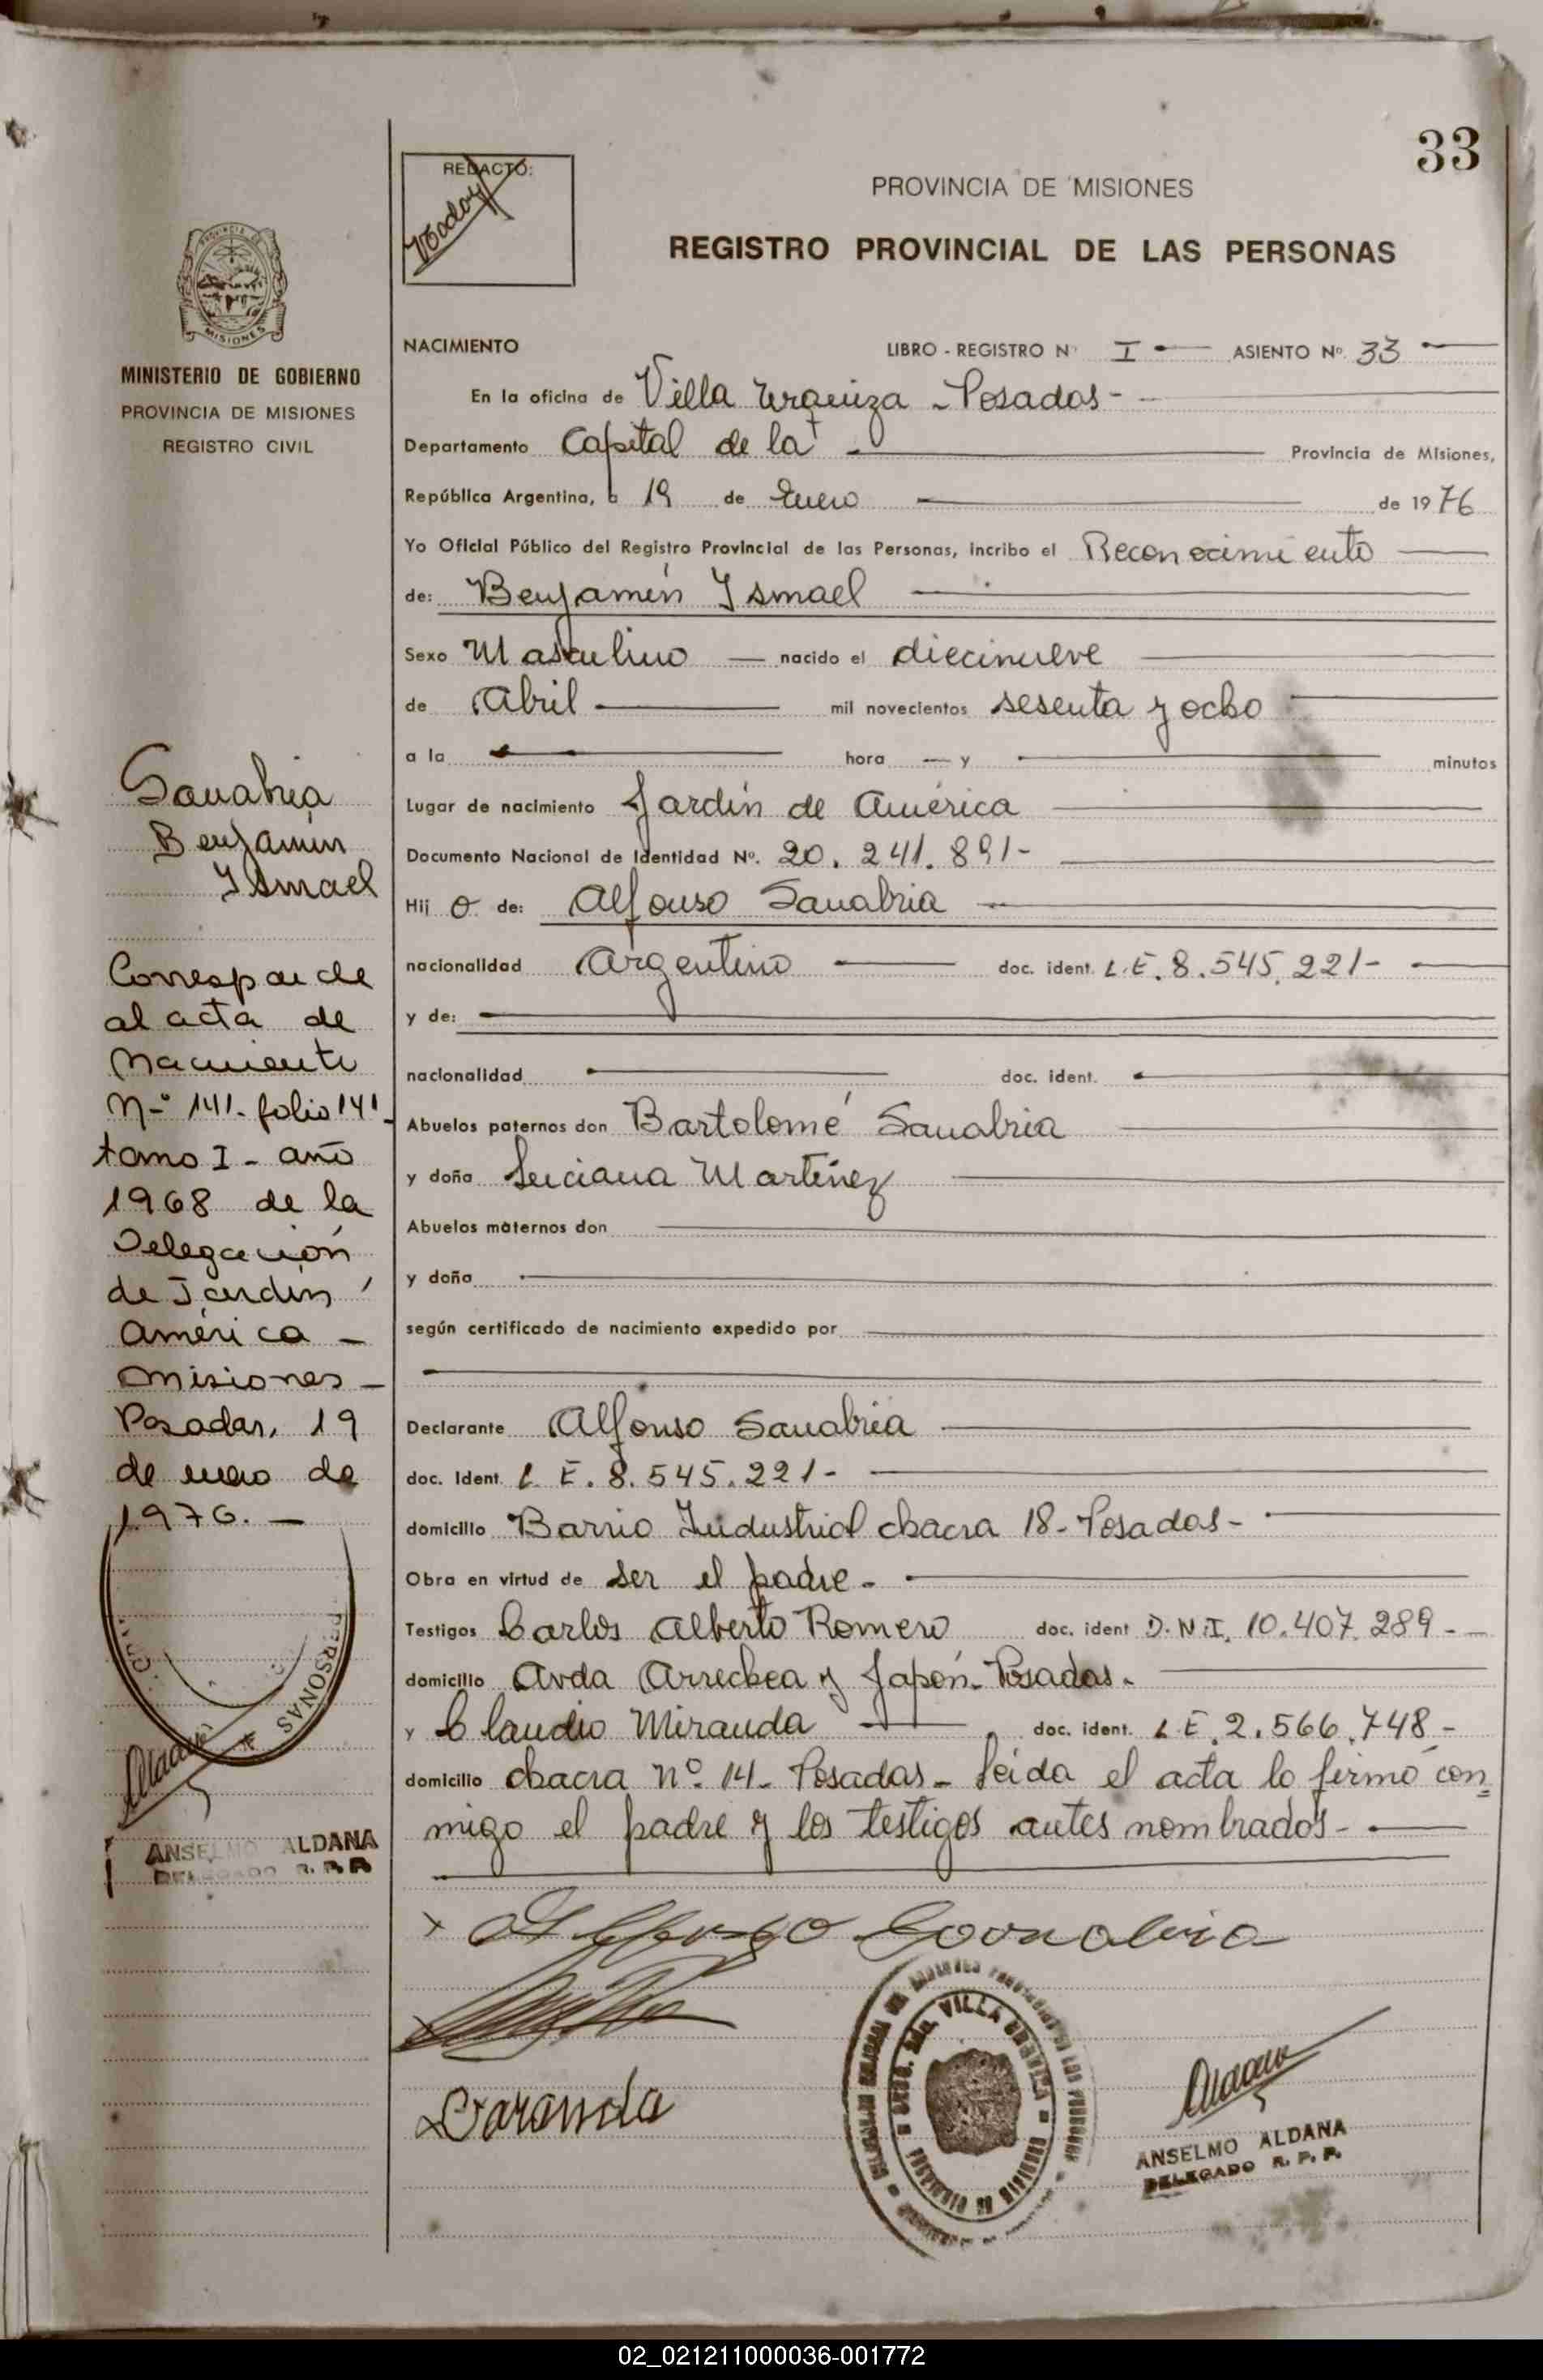 33
REDACTO:
PROVINCIA DE MISIONES
REGISTRO PROVINCIAL DE LAS PERSONAS
MISIONES
MINISTERIO DE GOBIERNO
PROVINCIA DE MISIONES
REGISTRO CIVIL
NACIMIENTO LIBRO - REGISTRO N° I — ASIENTO Nº. 33 —
En la oficina de Villa Urquiza - Posadas -
Departamento Capital de la — Provincia de Misiones,
República Argentina, a 19 de Enero — de 1976
Yo Oficial Público del Registro Provincial de las Personas, incribo el Reconocimiento —
de: Benjamín Ismael —
Sexo Masculino — nacido el diecinueve —
de Abril — mil novecientos sesenta y ocho —
a la — hora — y — minutos
Lugar de nacimiento Jardín de América —
Documento Nacional de Identidad Nº. 20.241.891- —
Hij o de: Alfonso Sanabria —
nacionalidad Argentino — doc. ident. L.E. 8.545.221- —
y de: —
nacionalidad — doc. ident. —
Abuelos paternos don Bartolomé Sanabria —
y doña Luciana Martínez —
Abuelos maternos don —
y doña —
según certificado de nacimiento expedido por —
—
Declarante Alfonso Sanabria —
doc. Ident. L.E. 8.545.221- —
domicilio Barrio Industrial chacra 18- Posadas- —
Obra en virtud de ser el padre- —
Testigos Carlos Alberto Romero doc. ident D.N.I. 10.407.289 - —
domicilio Avda Arrechea y Japón- Posadas- —
y Claudio Miranda — doc. ident. L.E. 2.566.748 -
domicilio chacra nº 14- Posadas- Leída el acta lo firmó con=
migo el padre y los testigos antes nombrados- —
Sanabria
Benjamín
Ismael
Corresponde
al acta de
Nacimiento
N-º 141- folio 141-
tomo I - año
1968 de la
Delegación
de Jardín
América -
Misiones -
Posadas, 19
de enero de
1976. —
PERSONAS
ANSELMO ALDANA
DELEGADO R. P. P.
x Alfonso Sanabria
VILLA URQUIZA
ANSELMO ALDANA
DELEGADO R. P. P.
02_021211000036-001772